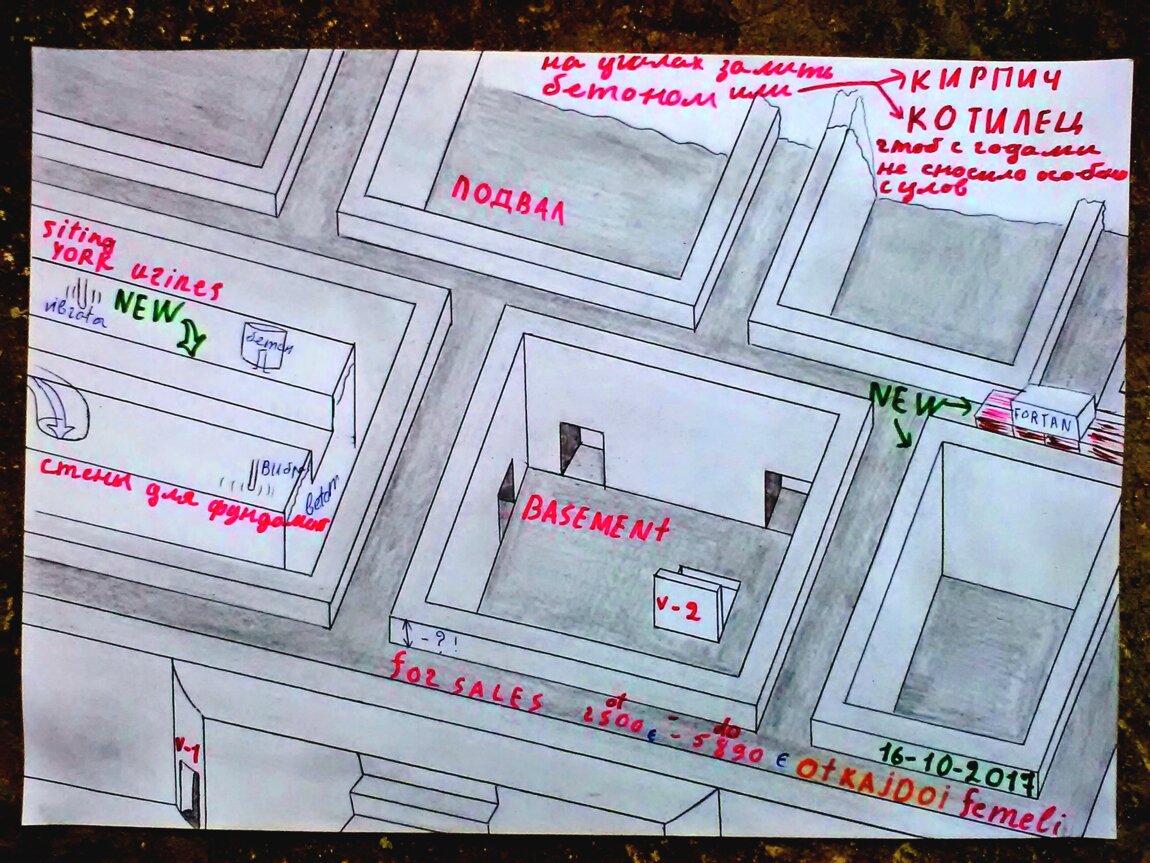 на угалах залить
бетоном или
КИРПИЧ
КОТИЛЕЦ
чтоб с годами
не сносило особено
с улов
ПОДВАЛ
siting
YORK uzines
NEW
vibrata
бетон
NEW
FORTAN
Вибра
beton
стены для фундамент
BASEMENt
V-2
-?!
for SALES ot 2500 € - do 5890 € OtKAJDOi femeli
16-10-2017
V-1